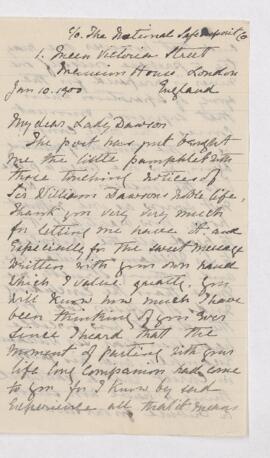 c/o The National Safe Deposit Co
1. Queen Victoria Street
Mansion House, London
Jan 10. 1900 England
My dear Lady Dawson
The post has just brought
me the little pamphlet with
those touching notices of
Sir William Dawson's noble life,
Thank you very very much
for letting me have it and
Especially for the sweet message
written with your own hand
which I value greatly. You
will know how much I have
been thinking of you ever
since I heard that the
moment of parting with your
life long companion had come
to you for I know by sad
Experience all that it means